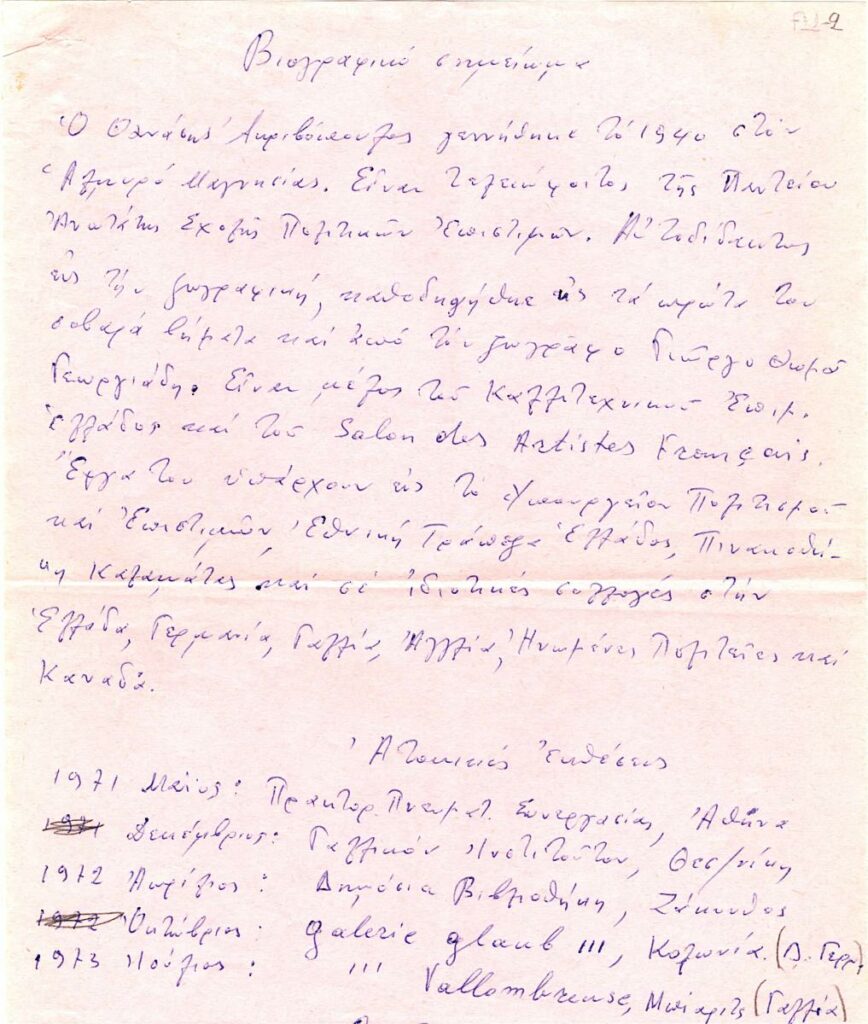 Βιογραφικό σημείωμα
Ὁ Θανάσης Ἀκριβόπουλος γεννήθηκε τό 1940 στόν
Ἁλμυρό Μαγνησίας. Εἶναι τελειόφοιτος τῆς Παντείου
Ἀνωτάτης Σχολῆς Πολιτικῶν Ἐπιστημῶν. Αὐτοδίδακτος
εἰς τήν ζωγραφική, καθοδηγήθηκε εἰς τά πρῶτα του
σοβαρά βήματα καί ἀπό τόν ζωγράφο Γιῶργο Θωμᾶ
Γεωργιάδη. Εἶναι μέλος τοῦ Καλλιτεχνικοῦ Ἐπιμ.
Ἑλλάδος καί τοῦ Salon des Artistes Français.
Ἔργα του ὑπάρχουν εἰς τό Ὑπουργεῖον Πολιτισμοῦ
καί Ἐπιστημῶν, Ἐθνική Τράπεζα Ἑλλάδος, Πινακοθή-
κη Καλαμάτας καί σέ ἰδιωτικές συλλογές στήν
Ἑλλάδα, Γερμανία, Γαλλία, Ἀγγλία, Ἡνωμένες Πολιτεῖες καί
Καναδᾶ.
Ἀτομικές Ἐκθέσεις
1971 Μάϊος: Πρακτορ. Πνευματ. Συνεργασίας, Ἀθήνα
1971 Δεκέμβριος: Γαλλικόν Ἰνστιτοῦτον, Θεσ/νίκη
1972 Ἀπρίλιος: Δημόσια Βιβλιοθήκη, Ζάκυνθος
1972 Ὀκτώβριος: galerie glaub III, Κολωνία. (Δ. Γερμ.)
1973 Ἰούλιος: ''' Vallombreuse, Μπιαρίτς (Γαλλία)